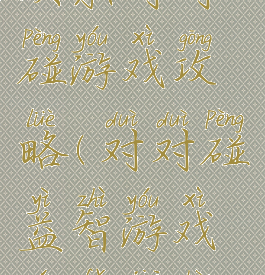 pèng yóu xì gōng
碰游戏攻
lüè duì duì pèng
略(对对碰
yì zhì yóu xì
益智游戏